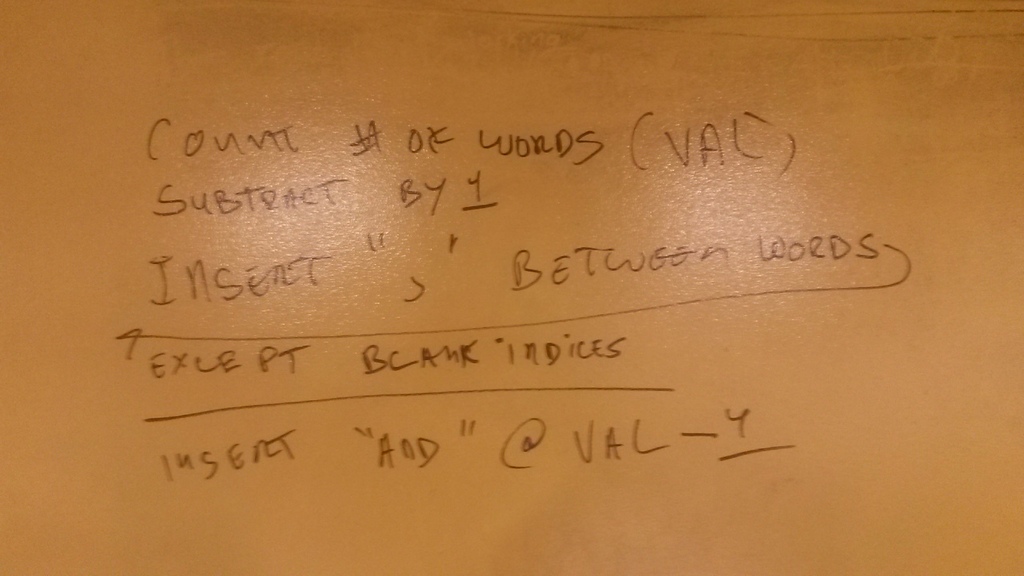 COUNT # OF WORDS (VAL)
SUBTRACT BY 1
INSERT "," BETWEEN WORDS
EXCEPT BLANK INDICES
INSERT "AND" @ VAL - 1